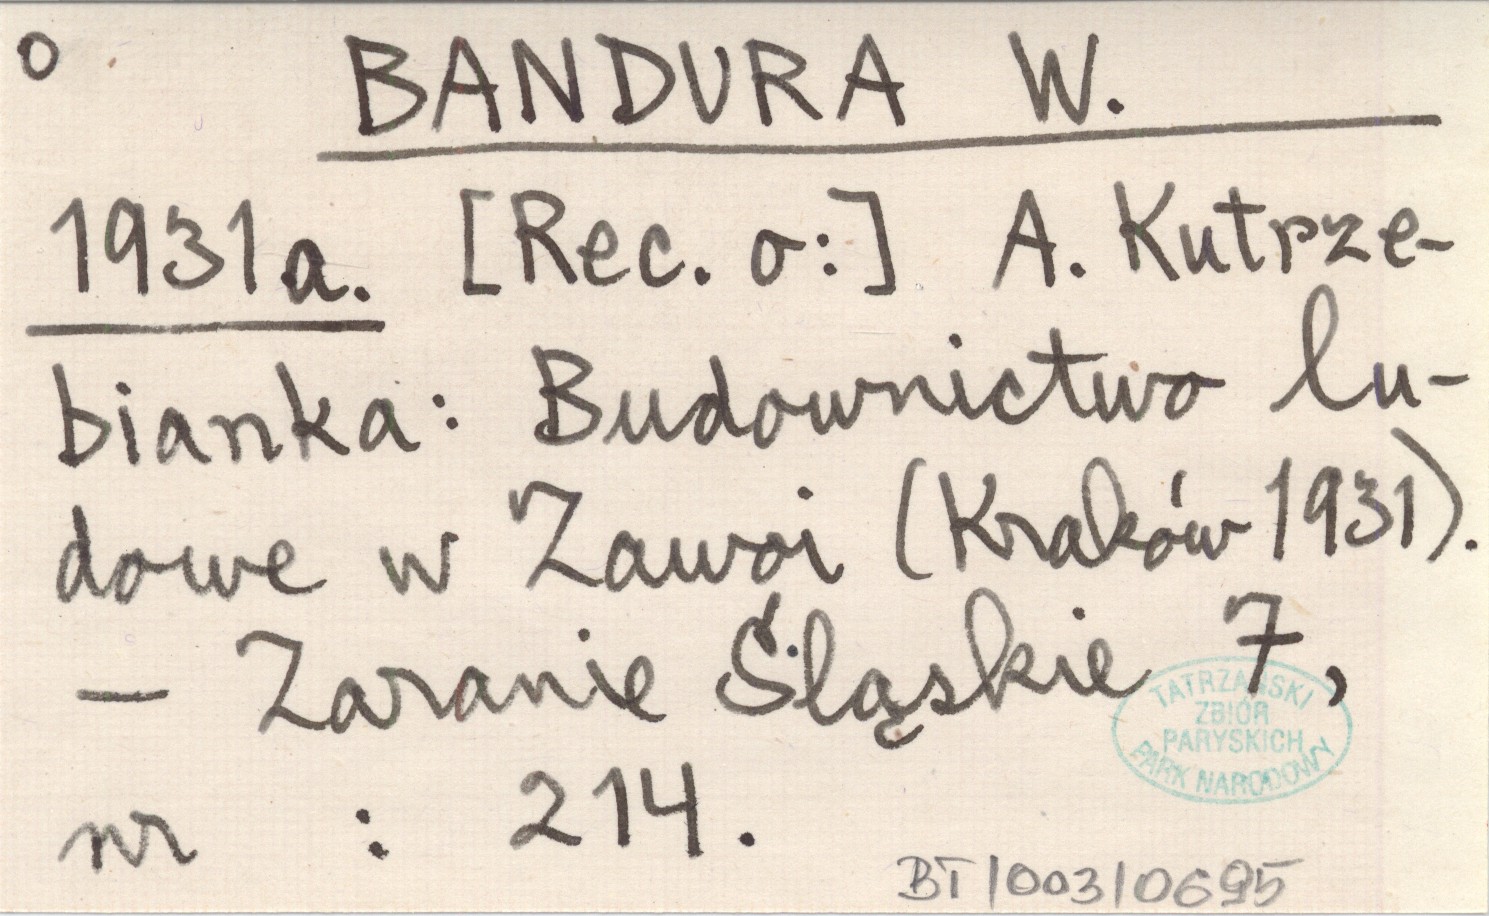 o BANDURA W.
1931a. [Rec. o:] A. Kutrze-
bianka: Budownictwo lu-
dowe w Zawoi (Kraków 1931).
— Zaranie Śląskie 7,
nr : 214.
TATRZAŃSKI
ZBIÓR
PARYSKICH
PARK NARODOWY
BT/003/0695